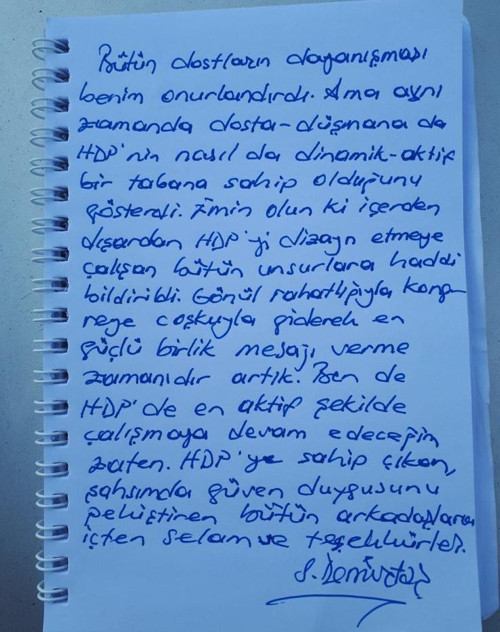 Bütün dostların dayanışması
benim onurlandırdı. Ama aynı
zamanda dosta-düşmana da
HDP'nin nasıl da dinamik-aktif
bir tabana sahip olduğunu
gösterdi. Emin olun ki içerden
dışardan HDP'yi dizayn etmeye
çalışan bütün unsurlara haddi
bildirildi. Gönül rahatlığıyla kong-
reye coşkuyla giderek en
güçlü birlik mesajı verme
zamanıdır artık. Ben de
HDP'de en aktif şekilde
çalışmaya devam edeceğim
zaten. HDP'ye sahip çıkan,
şahsımda güven duygusunu
pekiştiren bütün arkadaşlara
içten selam ve teşekkürler.
S. Demirtaş